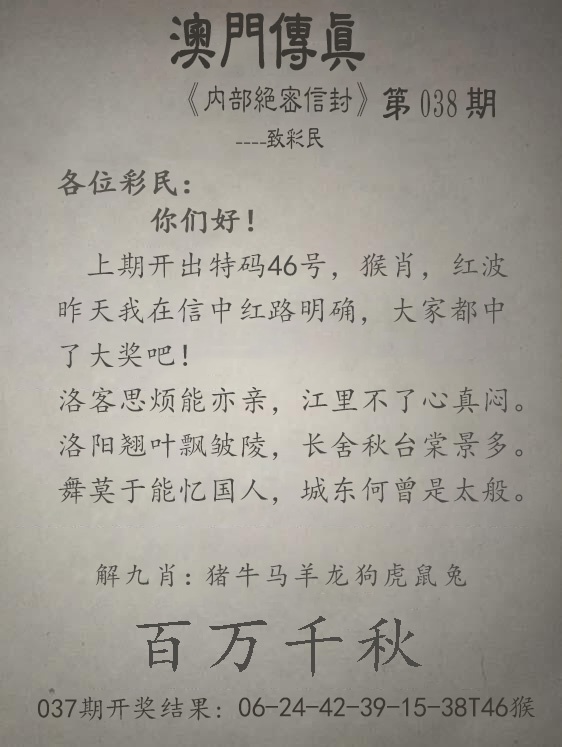 澳門傳眞
《内部絕密信封》第038期
----致彩民
各位彩民：
你们好！
上期开出特码46号，猴肖，红波
昨天我在信中红路明确，大家都中
了大奖吧！
洛客思烦能亦亲，江里不了心真闷。
洛阳翘叶飘皱陵，长舍秋台棠景多。
舞莫于能忆国人，城东何曾是太般。
解九肖：猪牛马羊龙狗虎鼠兔
百万千秋
037期开奖结果：06-24-42-39-15-38T46猴